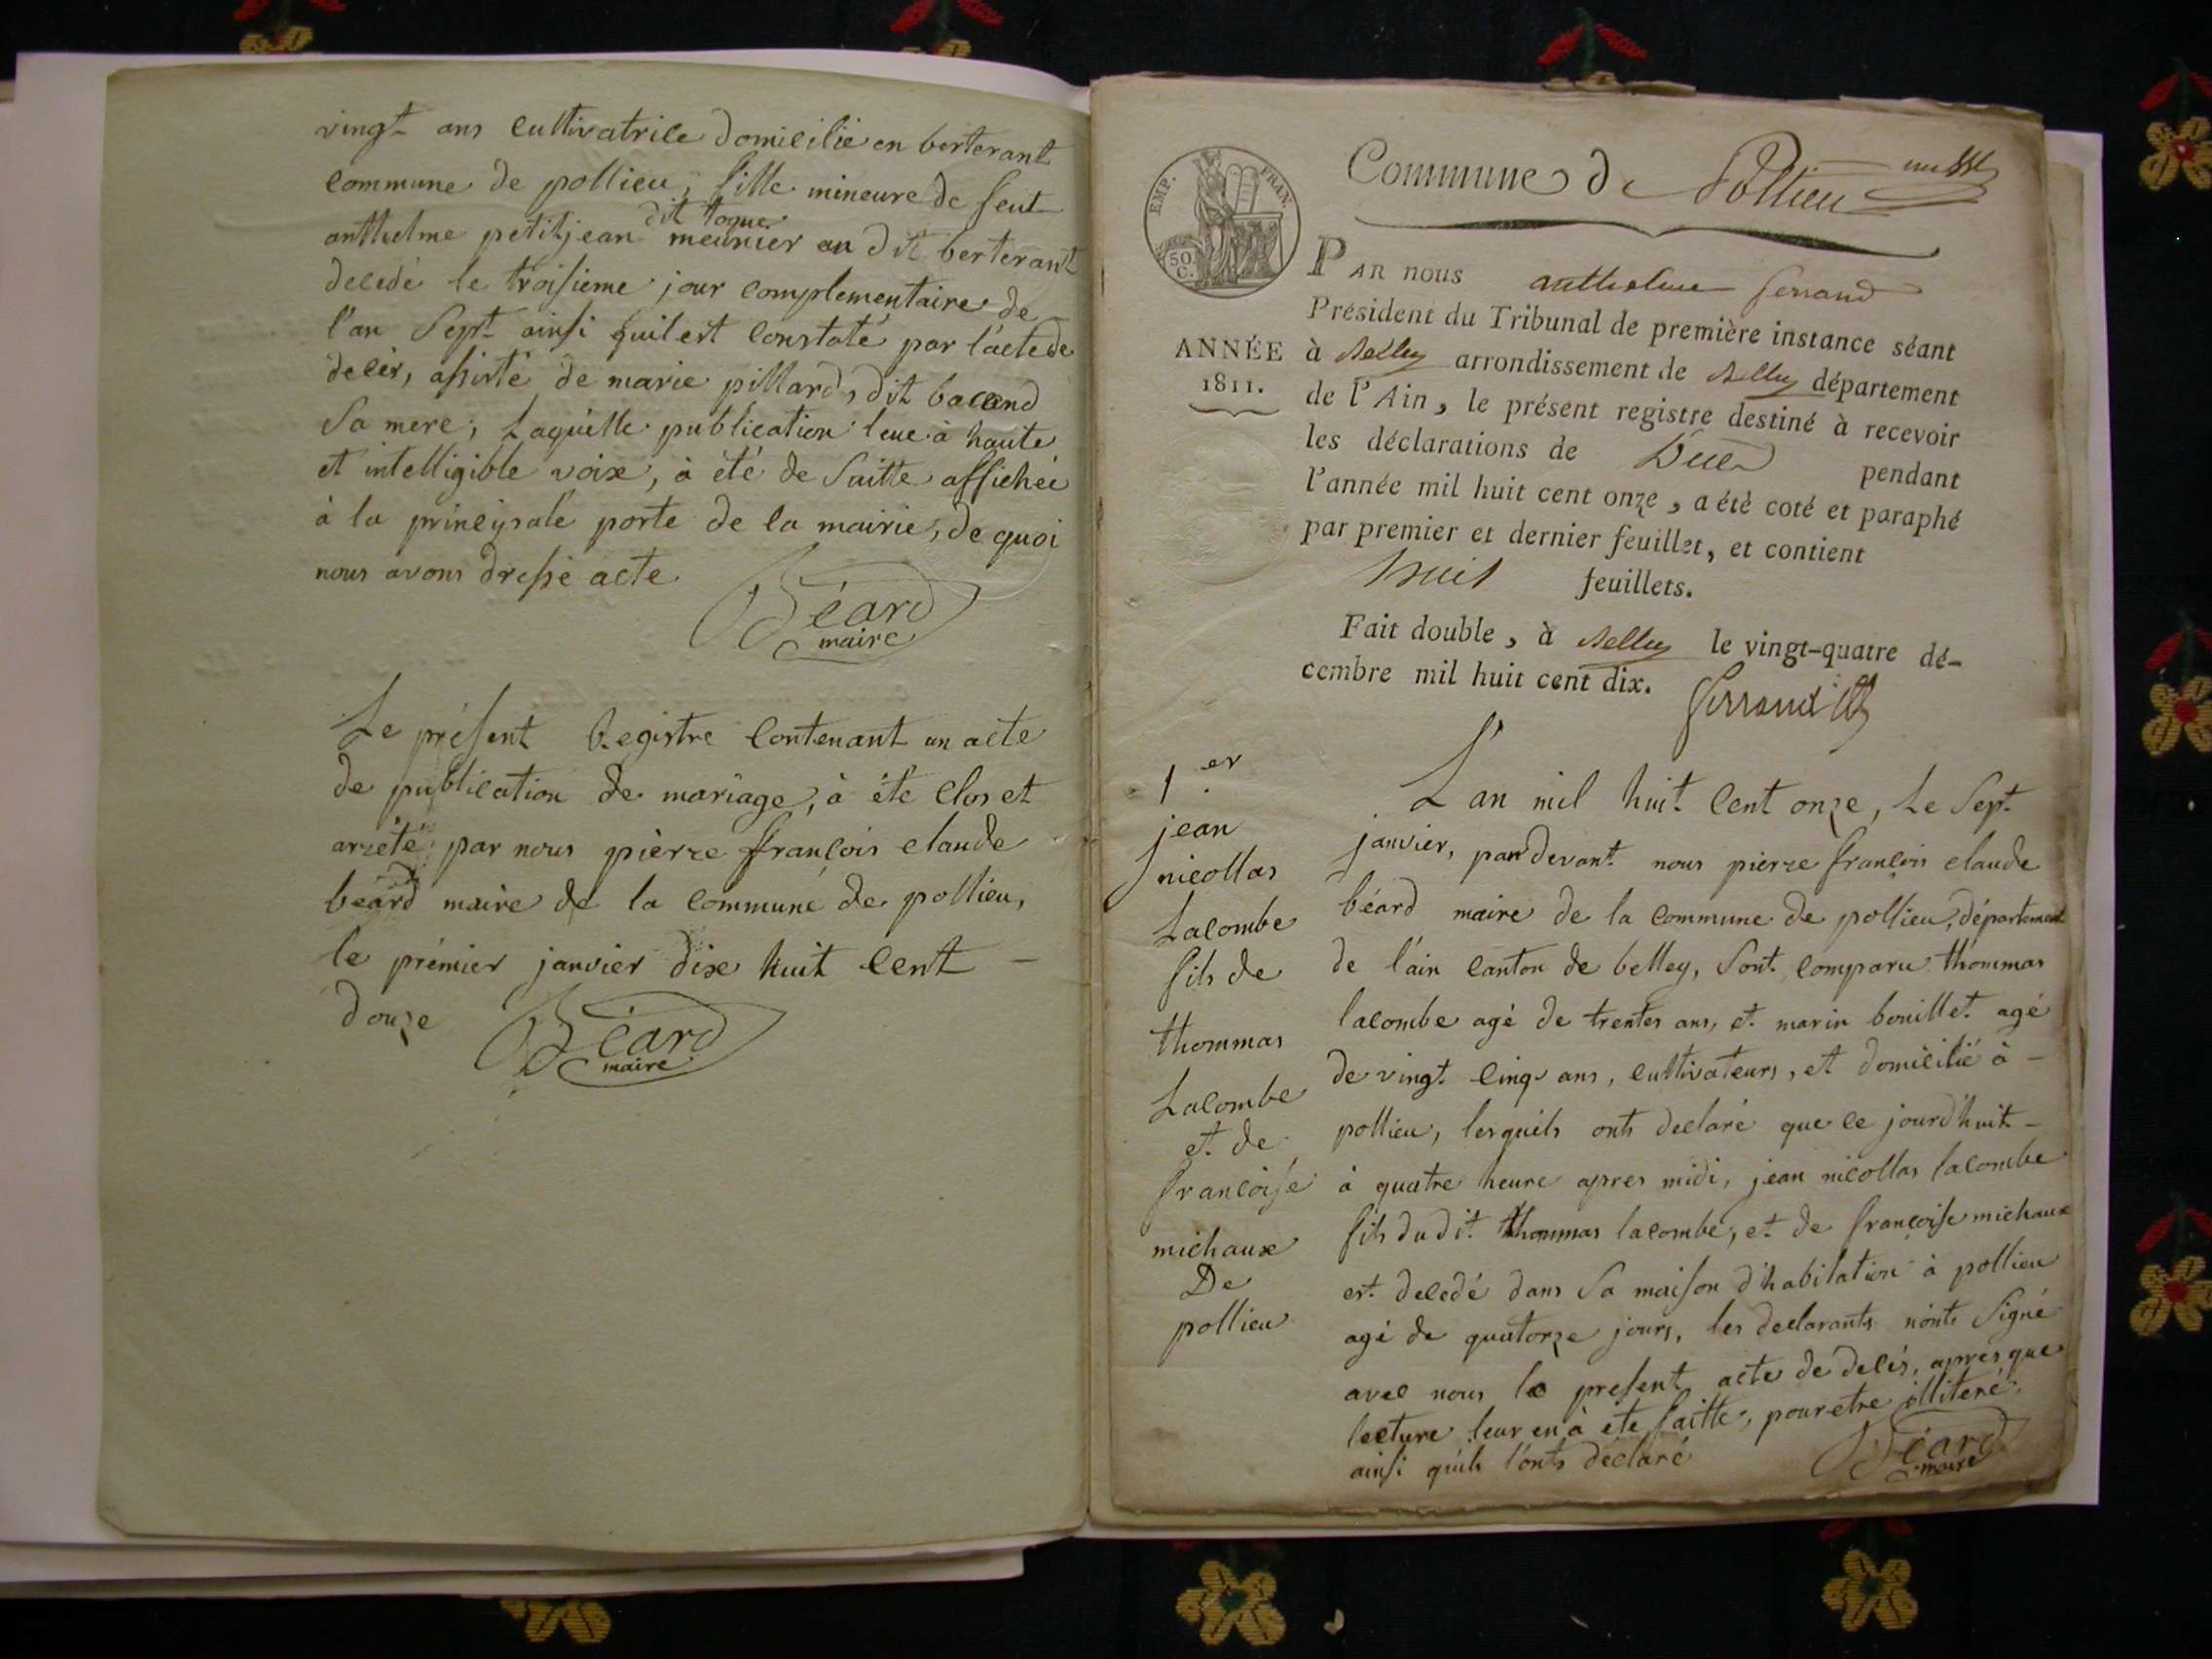 vingt ans cultivatrice domicilié en berterant
commune de pollieu, fille mineure de feut
anthelme petitjean dit toque meunier au dit berterant
decedé le troisieme jour complementaire de
l'an sept ainsi quil est constaté par l'acte de
decès, assisté de marie pillard, dit bacand
sa mere; laquelle publication leue à haute
et intelligible voix, à été de suitte affichée
à la principale porte de la mairie, de quoi
nous avons dressé acte
Béard
maire
Le présent Registre contenant un acte
de publication de mariage, à été clos et
arrété par nous pièrre françois claude
béard maire de la commune de pollieu,
le prémier janvier dix huit cent –
douze
Béard
maire
Commune de Pollieu
EMP. FRAN.
50 C.
ANNÉE
1811.
PAR nous anthelme ferrand
Président du Tribunal de première instance séant
à Belley arrondissement de Belley département
de l'Ain, le présent registre destiné à recevoir
les déclarations de Décès pendant
l'année mil huit cent onze, a été coté et paraphé
par premier et dernier feuillet, et contient
huit feuillets.
Fait double, à Belley le vingt-quatre dé-
cembre mil huit cent dix.
ferrand
1.er
jean
nicollas
Lacombe
fils de
thommas
Lacombe
et de
françoise
michaux
De
pollieu
L'an mil huit cent onze, le sept
janvier, pardevant nous pierre françois claude
béard maire de la commune de pollieu, département
de l'ain canton de belley, sont comparu thommas
lacombe agé de trentes ans, et marin bouillet agé
de vingt cinq ans, cultivateurs, et domicilié à –
pollieu, lesquels onts declaré que ce jourd'huit –
à quatre heure apres midi, jean nicollas lacombe
fils dudit thommas lacombe, et de françoise michaux
est decedé dans sa maison d'habitation à pollieu
agé de quatorze jours, les declarants n'onts signé
avec nous le present acte de decès, apres que
lecture leur en à été faitte, pour etre illiteré,
ainsi quils l'onts déclaré
Béard
maire